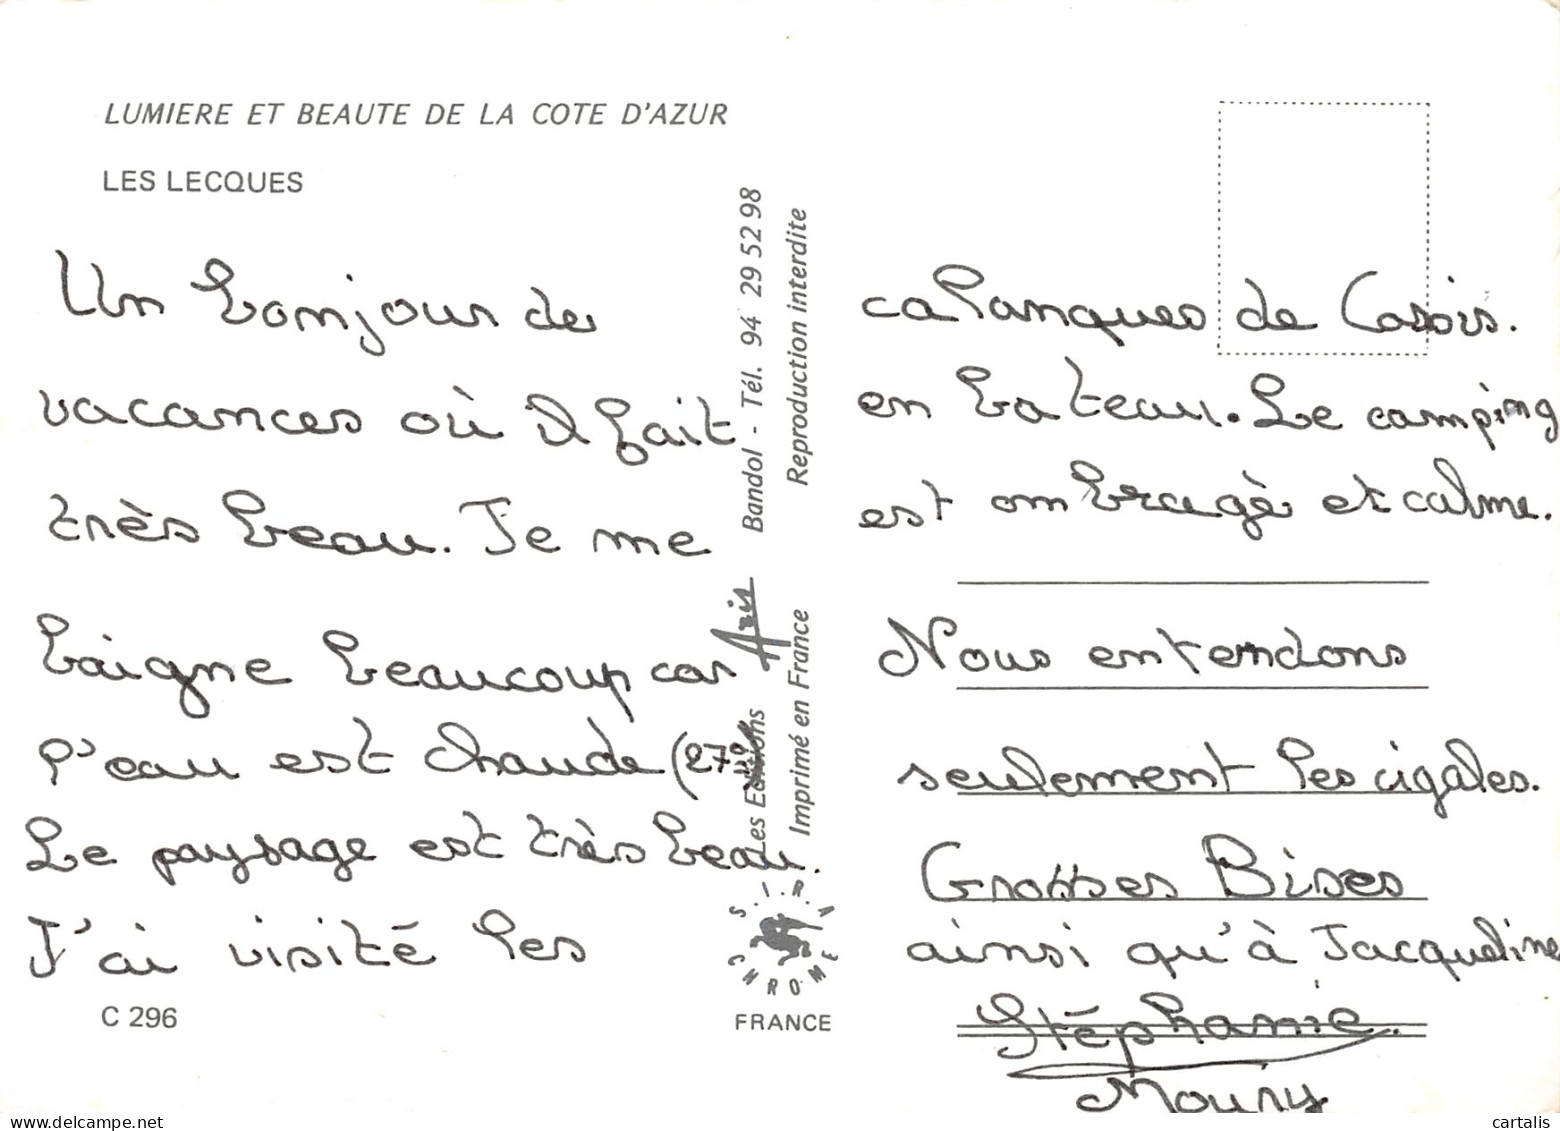 LUMIERE ET BEAUTE DE LA COTE D'AZUR
LES LECQUES
Un bonjour des
vacances où il fait
très beau. Je me
baigne beaucoup car
l'eau est chaude (27°)
Le paysage est très beau.
J'ai visité les
C 296
Les Editions Aris Bandol - Tél. 94 29 52 98
Imprimé en France Reproduction interdite
S.I.R.A
CHROME
FRANCE
calanques de Cassis.
en bateau. Le camping
est ombragè et calme.
Nous entendons
seulement les cigales.
Grosses Bises
ainsi qu'à Jacqueline
Stéphanie.
Mouiry
cartalis